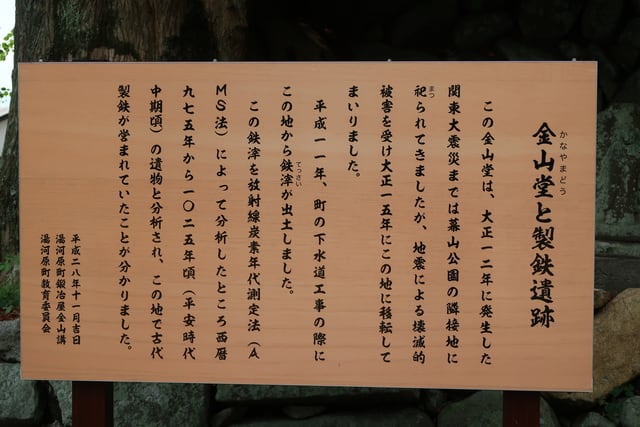 金山堂と製鉄遺跡
かなやまどう
この金山堂は、大正一二年に発生した
関東大震災までは幕山公園の隣接地に
祀られてきましたが、地震による壊滅的
まつ
被害を受け大正一五年にこの地に移転して
まいりました。
平成一一年、町の下水道工事の際に
この地から鉄滓が出土しました。
てっさい
この鉄滓を放射線炭素年代測定法（A
MS法）によって分析したところ西暦
九七五年から一〇二五年頃（平安時代
中期頃）の遺物と分析され、この地で古代
製鉄が営まれていたことが分かりました。
平成二八年十一月吉日
湯河原町鍛冶屋金山講
湯河原町教育委員会